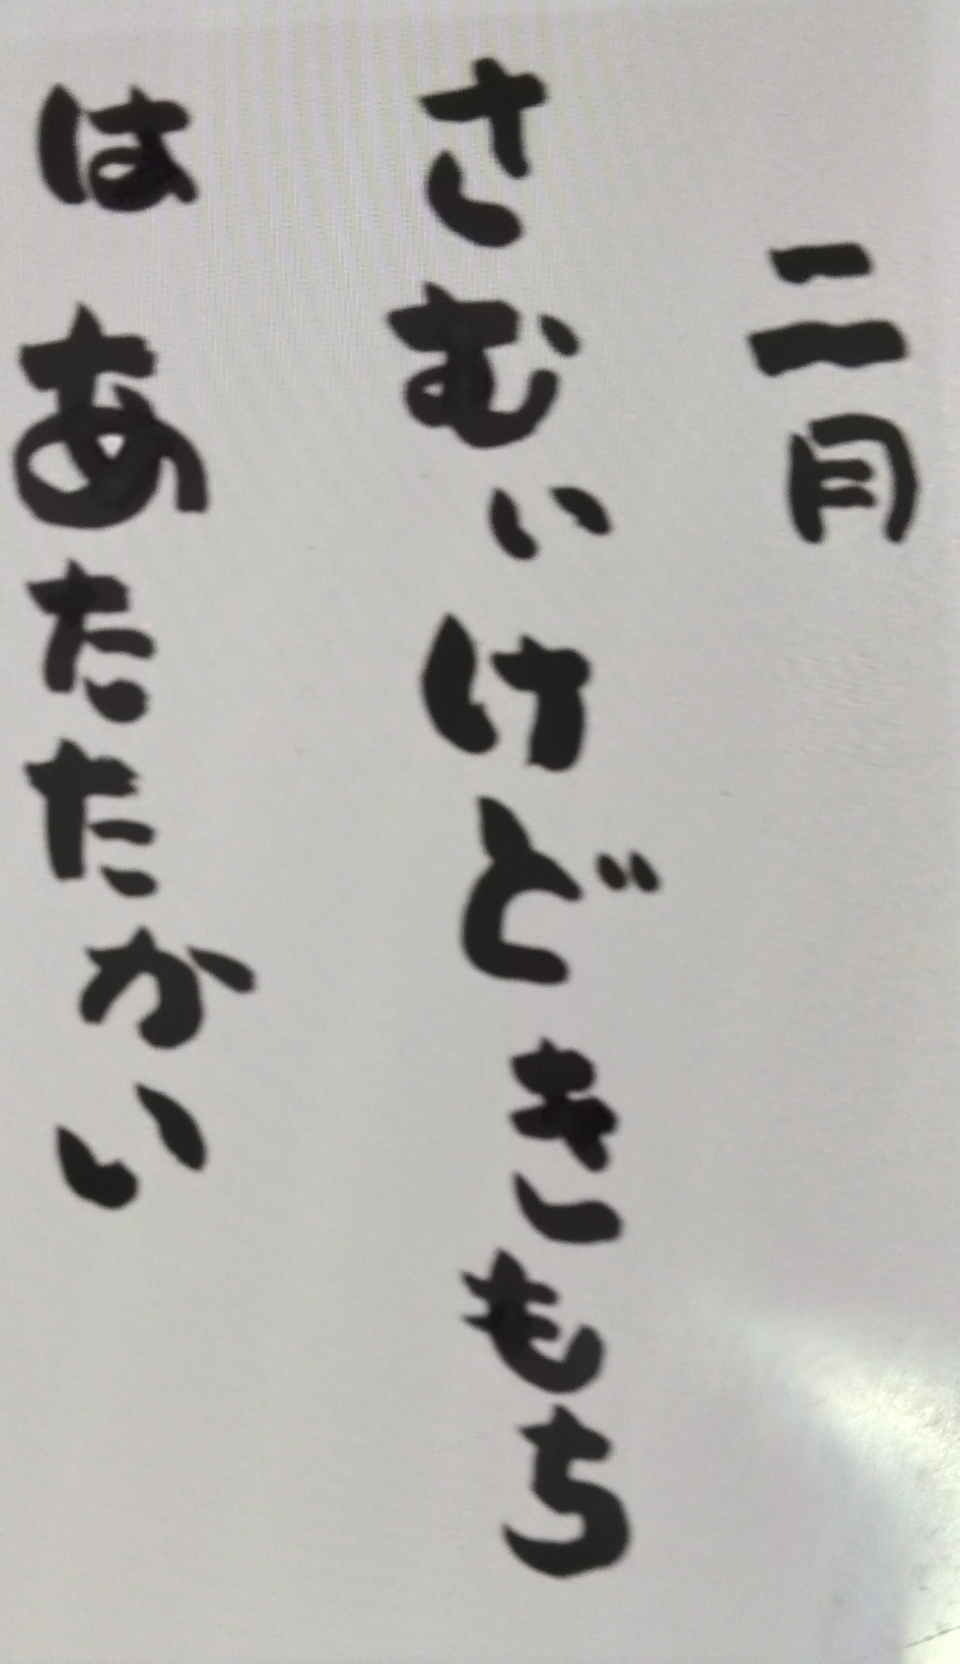 二月
さむいけどきもち
はあたたかい